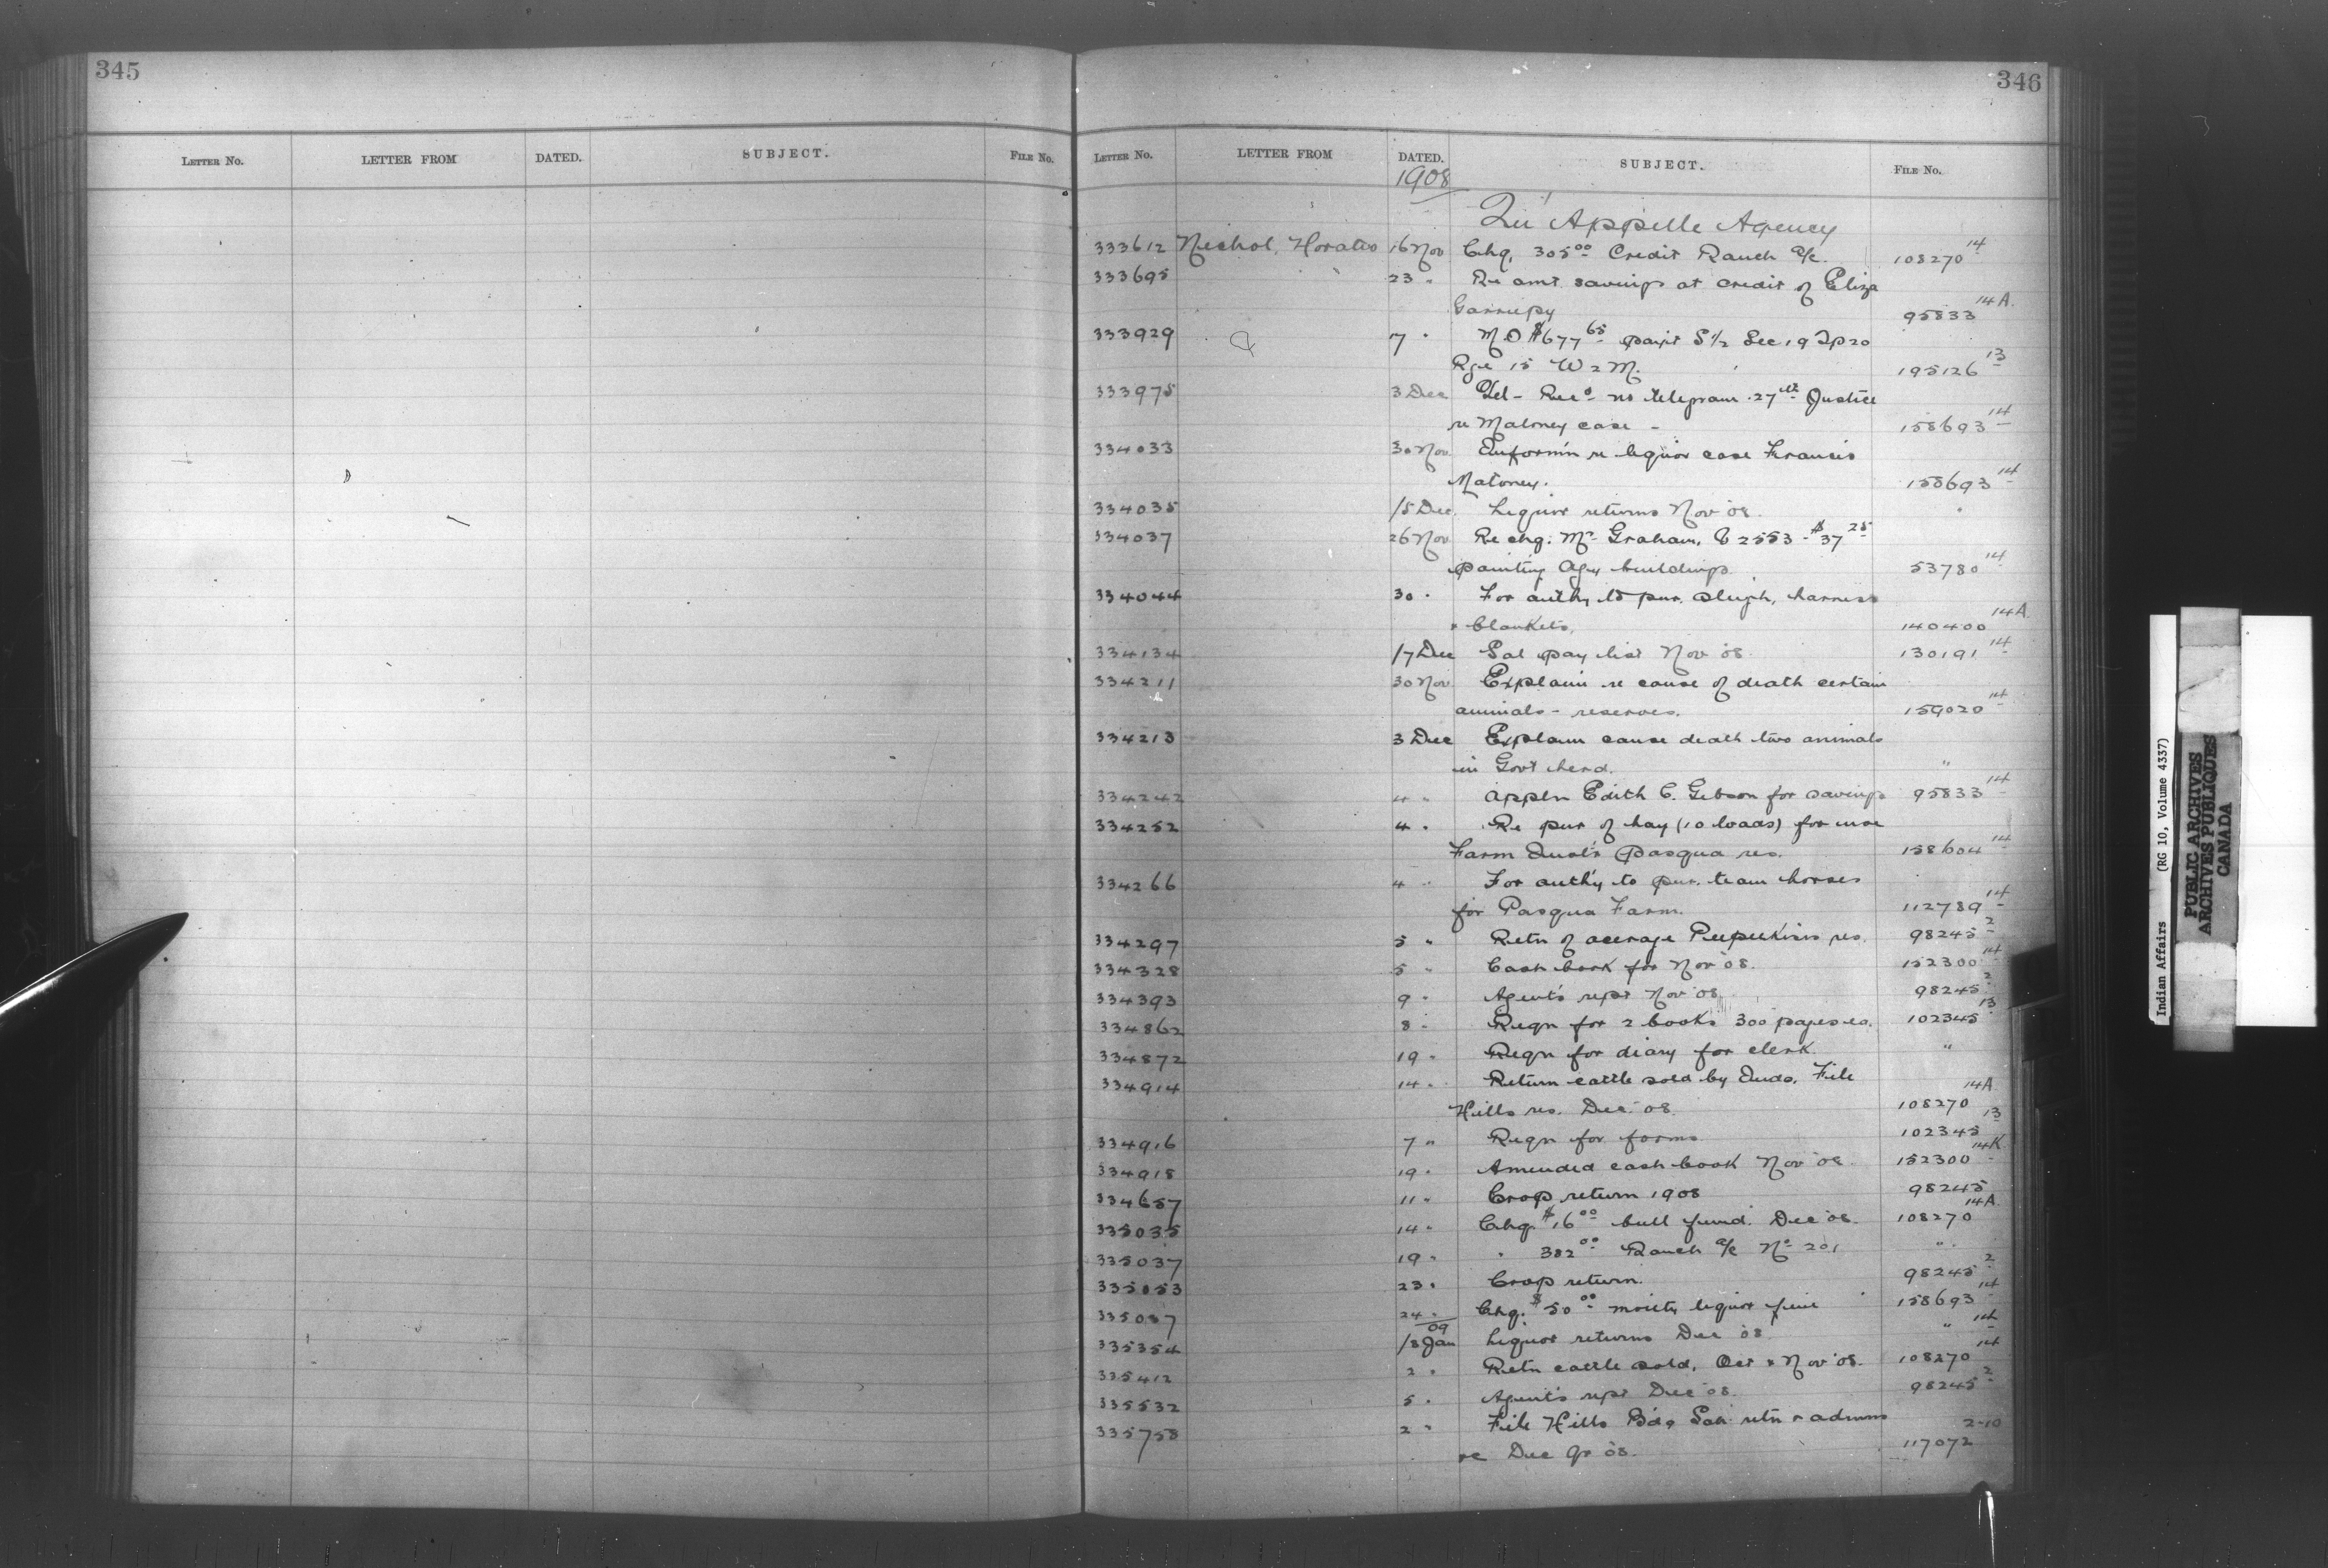 345
LETTER NO. LETTER FROM DATED. SUBJECT. FILE NO.
346
LETTER NO. LETTER FROM DATED. SUBJECT. FILE NO.
1908
Qu'Appelle Agency
333612 Nichol, Horatio 16 Nov Chq. 305 00 Credit Ranch a/c. 108270 14
333695 23 " Re amt. savings at credit of Eliza
Garriepy 95833 14A.
333929 7 " M.O $677 65 paym't S 1/2 Sec 19 Tp 20
Rge 15 W 2 M. 195126 13
333975 3 Dec Tel - Rec'd no telegram 27th Justice
re Maloney case - 158693 14
334033 30 Nov Inform'n re liquor case Francis
Maloney. 158693 14
334035 /5 Dec. Liquor returns Nov '08. "
334037 26 Nov Re chq. Mr. Graham, 2553 - $37 25
painting Agy buildings. 53780 14
334044 30 " For auth'y to pur. sleigh, harness
& blankets. 140400 14A.
334134 /7 Dec Sal pay list Nov '08 130191 14
334211 30 Nov Explain re cause of death certain
animals - reserves. 159020 14
334213 3 Dec Explain cause death two animals
in Gov't herd. "
334242 4 " Appl'n Edith C. Gibson for savings 95833 14
334252 4 " Re pur of hay (10 loads) for use
Farm Inst'r Pasqua res. 158604 14
334266 4 " For auth'y to pur. team horses
for Pasqua Farm. 112789 14
334297 5 " Retn of acerage Peepeekisis res. 98245 2
334328 5 " Cash book for Nov '08. 152300 14
334393 9 " Agent's rept Nov '08. 98245 2
334862 8 " Reqn for 2 books 300 pages ea. 102345 13
334872 19 " Reqn for diary for clerk. "
334914 14 " Return cattle sold by Inds. File
Hills res. Dec. '08. 108270 14A
334916 7 " Reqn for forms 102345 13
334918 19 " Amended cash book Nov '08. 152300 14K
334657 11 " Crop return 1908 98245
335035 14 " Chq. $16 00 bull fund. Dec '08. 108270 14A
335037 19 " " 382 00 Ranch a/c No 201 "
335053 23 " Crop return. 98245 2
335087 24 " Chq. $50 00 moiety liquor fine 158693 14
09
335354 /8 Jan Liquor returns Dec '08. " 14
335412 2 " Retn cattle sold, Oct & Nov '08. 108270 14
335532 5 " Agent's rept Dec '08. 98245 2
335758 2 " File Hills Bdg Sch retn & admns
re Dec qr '08. 117072 2-10
Indian Affairs (RG 10, Volume 4337)
PUBLIC ARCHIVES
ARCHIVES PUBLIQUES
CANADA